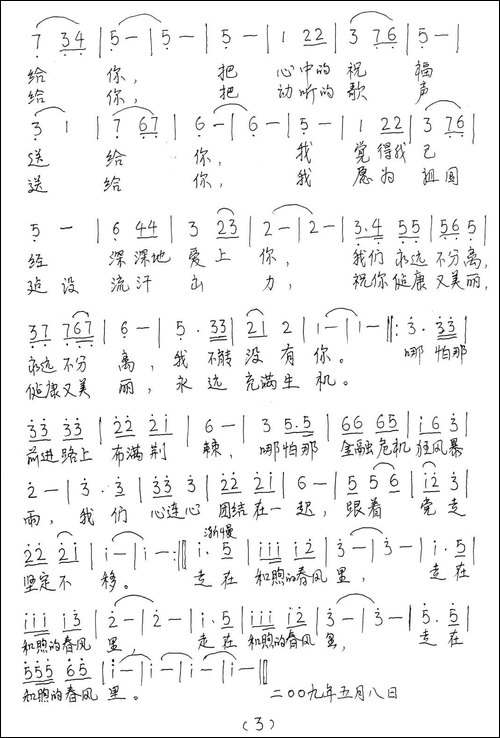 7 34 | 5 - | 5 - | 5 - | 1 22 | 3 76 | 5 - |
给 你， 把 心中的 祝 福
给 你， 把 动听的 歌 声
3 1 | 7 67 | 6 - | 6 - | 5 - | 1 22 | 3 76 |
送 给 你， 我 觉得我 已
送 给 你， 我 愿为 祖国
5 - | 6 44 | 3 23 | 2 - | 2 - | 3.4 55 | 565 |
经 深深地 爱上 你， 我们永远不分离，
建设 流汗 出 力， 祝你健康又美丽，
37 767 | 6 - | 5. 33 | 21 2 | 1 - | 1 - :‖: 3. 33 |
永远不分 离，我 不能 没有你。 哪怕那
健康又美 丽，永远 充满生机。
33 33 | 22 21 | 6 - | 3 5.5 | 66 65 | i 6 3 |
前进路上 布满荆 棘，哪怕那 金融危机 狂风暴
2 - | 3. 3 | 33 3 | 22 21 | 6 - | 5 5 6 | i2 3 |
雨，我们 心连心 团结在一起，跟着 党走
渐慢
22 2i | i - | i - :‖ i. 5 | iii i2 | 3 - | 3 - | i. 5 |
坚定不 移。 走在 和煦的春风 里， 走在
iii i3 | 2 - | 2 - | i. 5 | iii i2 | 3 - | 3 - | 5. 5 |
和煦的春风 里， 走在 和煦的春风 里， 走在
555 65 | i - | i - | i - | i - ‖
和煦的春风 里。 二〇〇九年五月八日
(3)